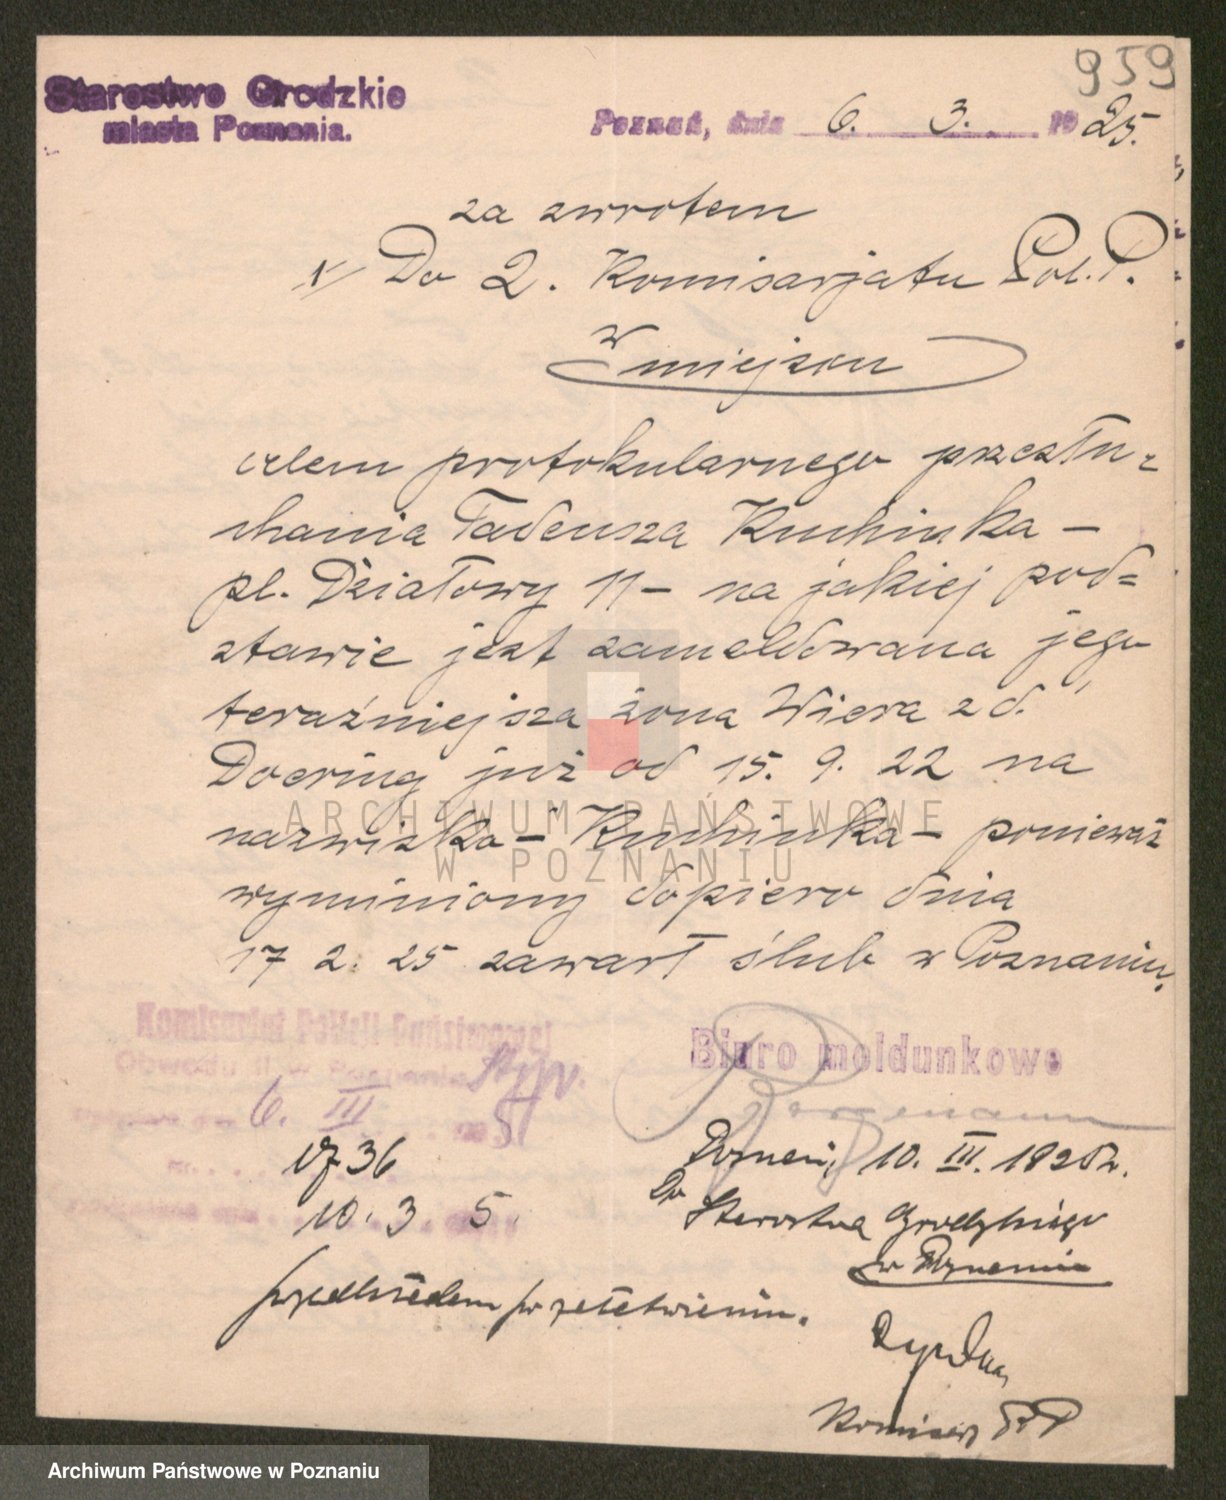 959
Starostwo Grodzkie
miasta Poznania.
Poznań, dnia 6. 3. 1925.
za zwrotem
1/ Do 2. Komisarjatu Pol. P.
w miejscu
celem protokularnego przesłu-
chania Tadeusza Kuchinka -
pl. Działowy 11 - na jakiej pod=
stawie jest zameldowana jego
teraźniejsza żona Wiera z d.
Doering już od 15. 9. 22 na
nazwisko - Kuchinka - ponieważ
wyminiony dopiero dnia
17 2. 25 zawarł ślub w Poznaniu.
Komisariat Policji Państwowej
Obwodu II. w Poznaniu
6. III
Biuro meldunkowe
Bergmann
36
10. 3 5
Poznań, 10. III. 1925 r.
Do Starostwa Grodzkiego
w Poznaniu
przedkładam po załatwieniu.
Komisarz P.P.
ARCHIWUM PAŃSTWOWE
W POZNANIU
Archiwum Państwowe w Poznaniu